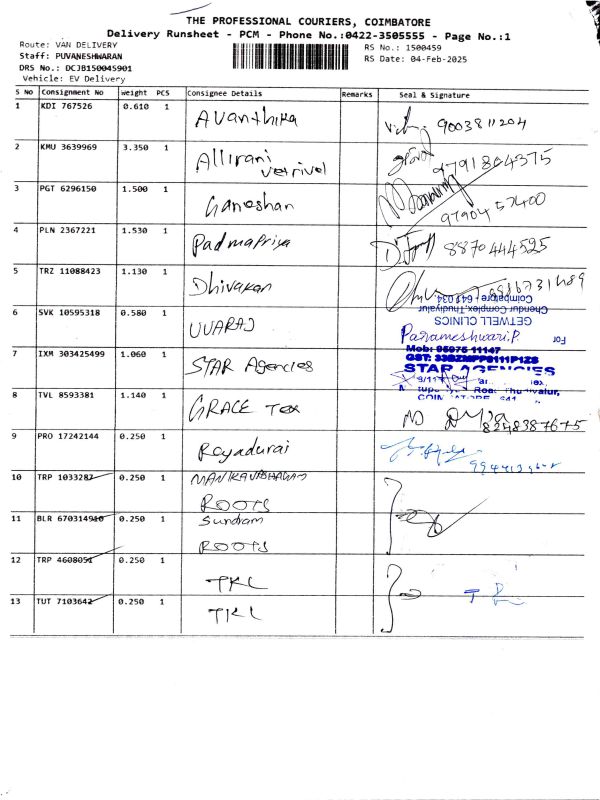 THE PROFESSIONAL COURIERS, COIMBATORE
Delivery Runsheet - PCM - Phone No.:0422-3505555 - Page No.:1
Route: VAN DELIVERY
RS No.: 1500459
Staff: PUVANESHWARAN
RS Date: 04-Feb-2025
DRS No.: DCJB150045901
Vehicle: EV Delivery
S No Consignment No Weight PCS Consignee Details Remarks Seal & Signature
1 KDI 767526 0.610 1 Avanthika 9003811204
2 KMU 3639969 3.350 1 Allirani Vetrivel 9791804375
3 PGT 6296150 1.500 1 Ganeshan 9790457400
4 PLN 2367221 1.530 1 Padmapriya 8870444525
5 TRZ 11088423 1.130 1 Dhivakan
6 SVK 10595318 0.580 1 UVARAJ
For GETWELL CLINICS
Chendur Complex, Thudiyalur
Coimbatore - 641 034.
Parameshwari.P.
7 IXM 303425499 1.060 1 STAR Agencies
Mob: 95975 11147
GST: 33BZMPP8111P1ZS
STAR AGENCIES
8 TVL 8593381 1.140 1 GRACE Tex
9 PRO 17242144 0.250 1 Rayadurai
10 TRP 1033287 0.250 1
ROOTS
11 BLR 670314910 0.250 1 Sundram
ROOTS
12 TRP 4608051 0.250 1 TKL
13 TUT 7103642 0.250 1 TKL